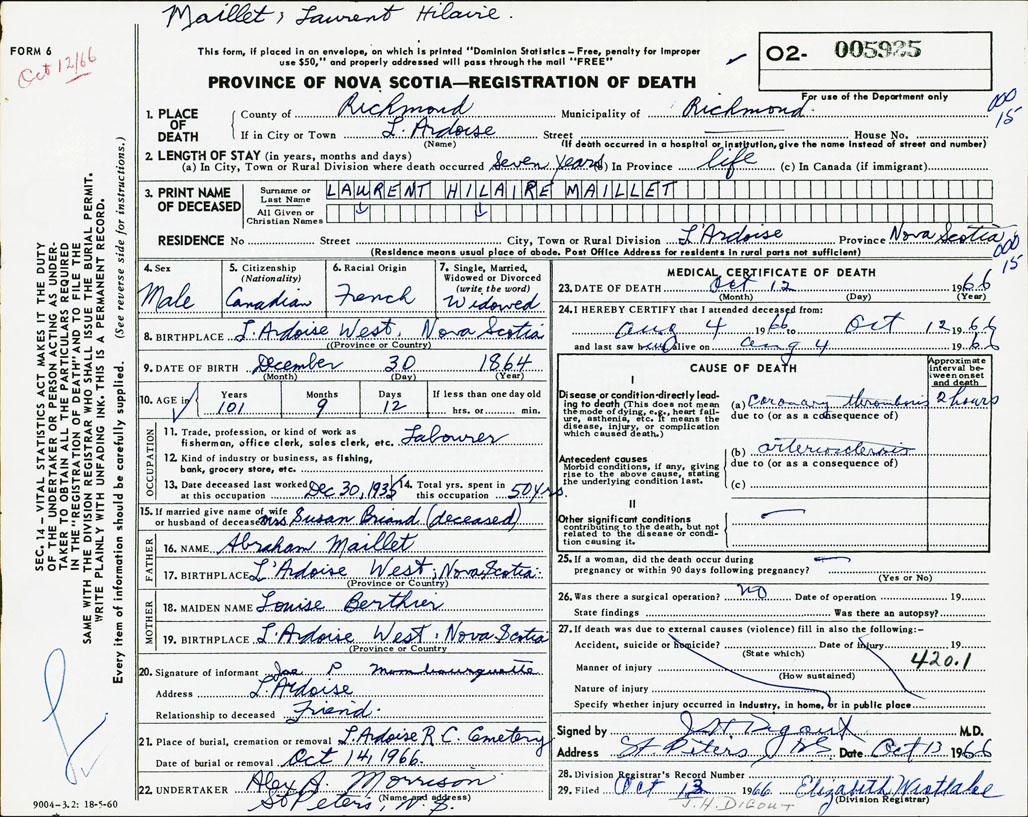 Maillet, Laurent Hilaire.
FORM 6
Oct 12/66
This form, if placed in an envelope, on which is printed "Dominion Statistics – Free, penalty for improper
use $50," and properly addressed will pass through the mail "FREE"
O2- 005925
PROVINCE OF NOVA SCOTIA—REGISTRATION OF DEATH
For use of the Department only
000
15
1. PLACE OF DEATH County of Richmond Municipality of Richmond.
If in City or Town L'Ardoise Street House No.
(Name) (If death occurred in a hospital or institution, give the name instead of street and number)
2. LENGTH OF STAY (in years, months and days)
(a) In City, Town or Rural Division where death occurred Seven years (b) In Province life (c) In Canada (if immigrant)
3. PRINT NAME OF DECEASED Surname or Last Name LAURENT HILAIRE MAILLET
All Given or Christian Names
RESIDENCE No Street City, Town or Rural Division L'Ardoise Province Nova Scotia
(Residence means usual place of abode. Post Office Address for residents in rural parts not sufficient)
000
15
4. Sex Male
5. Citizenship (Nationality) Canadian
6. Racial Origin French
7. Single, Married, Widowed or Divorced (write the word) Widowed
8. BIRTHPLACE L'Ardoise West, Nova Scotia
(Province or Country)
9. DATE OF BIRTH December 30 1864
(Month) (Day) (Year)
10. AGE in Years Months Days If less than one day old
101 9 12 hrs. or min.
OCCUPATION
11. Trade, profession, or kind of work as
fisherman, office clerk, sales clerk, etc. Labourer
12. Kind of industry or business, as fishing,
bank, grocery store, etc.
13. Date deceased last worked at this occupation Dec 30, 1935
14. Total yrs. spent in this occupation 50 yrs.
15. If married give name of wife
or husband of deceased Mrs Susan Briand (deceased)
FATHER
16. NAME Abraham Maillet
17. BIRTHPLACE L'Ardoise West, Nova Scotia.
(Province or Country)
MOTHER
18. MAIDEN NAME Louise Berthier
19. BIRTHPLACE L'Ardoise West, Nova Scotia
(Province or Country)
20. Signature of informant Joe P. Mombourquette
Address L'Ardoise
Relationship to deceased Friend.
21. Place of burial, cremation or removal L'Ardoise R.C. Cemetery
Date of burial or removal Oct 14, 1966.
22. UNDERTAKER Alex A. Morrison
(Name and address)
St Peters, N.S.
MEDICAL CERTIFICATE OF DEATH
23. DATE OF DEATH Oct 12 1966
(Month) (Day) (Year)
24. I HEREBY CERTIFY that I attended deceased from:
Aug 4 1966 to Oct 12 1966
and last saw h alive on Aug 4 1966
CAUSE OF DEATH
Approximate interval between onset and death
I
Disease or condition directly leading to death (This does not mean the mode of dying, e.g., heart failure, asthenia, etc. It means the disease, injury, or complication which caused death.)
(a) Coronary thrombosis 2 hours
due to (or as a consequence of)
Antecedent causes
Morbid conditions, if any, giving rise to the above cause, stating the underlying condition last.
(b) arteriosclerosis
due to (or as a consequence of)
(c)
II
Other significant conditions
contributing to the death, but not related to the disease or condition causing it.
25. If a woman, did the death occur during
pregnancy or within 90 days following pregnancy?
(Yes or No)
26. Was there a surgical operation? No Date of operation 19
State findings Was there an autopsy?
27. If death was due to external causes (violence) fill in also the following:–
Accident, suicide or homicide? Date of injury 19
(State which)
420.1
Manner of injury
(How sustained)
Nature of injury
Specify whether injury occurred in industry, in home, or in public place
Signed by J H Digout M.D.
Address St Peters NS Date Oct 13 1966
28. Division Registrar's Record Number
29. Filed Oct 13 1966 Elizabeth Westlake
J.H. DIGOUT (Division Registrar)
SEC. 14 – VITAL STATISTICS ACT MAKES IT THE DUTY
OF THE UNDERTAKER OR PERSON ACTING AS UNDER-
TAKER TO OBTAIN ALL THE PARTICULARS REQUIRED
IN THE "REGISTRATION OF DEATH" AND TO FILE THE
SAME WITH THE DIVISION REGISTRAR WHO SHALL ISSUE THE BURIAL PERMIT.
WRITE PLAINLY WITH UNFADING INK. THIS IS A PERMANENT RECORD.
Every item of information should be carefully supplied. (See reverse side for instructions.)
9004–3.2: 18-5-60